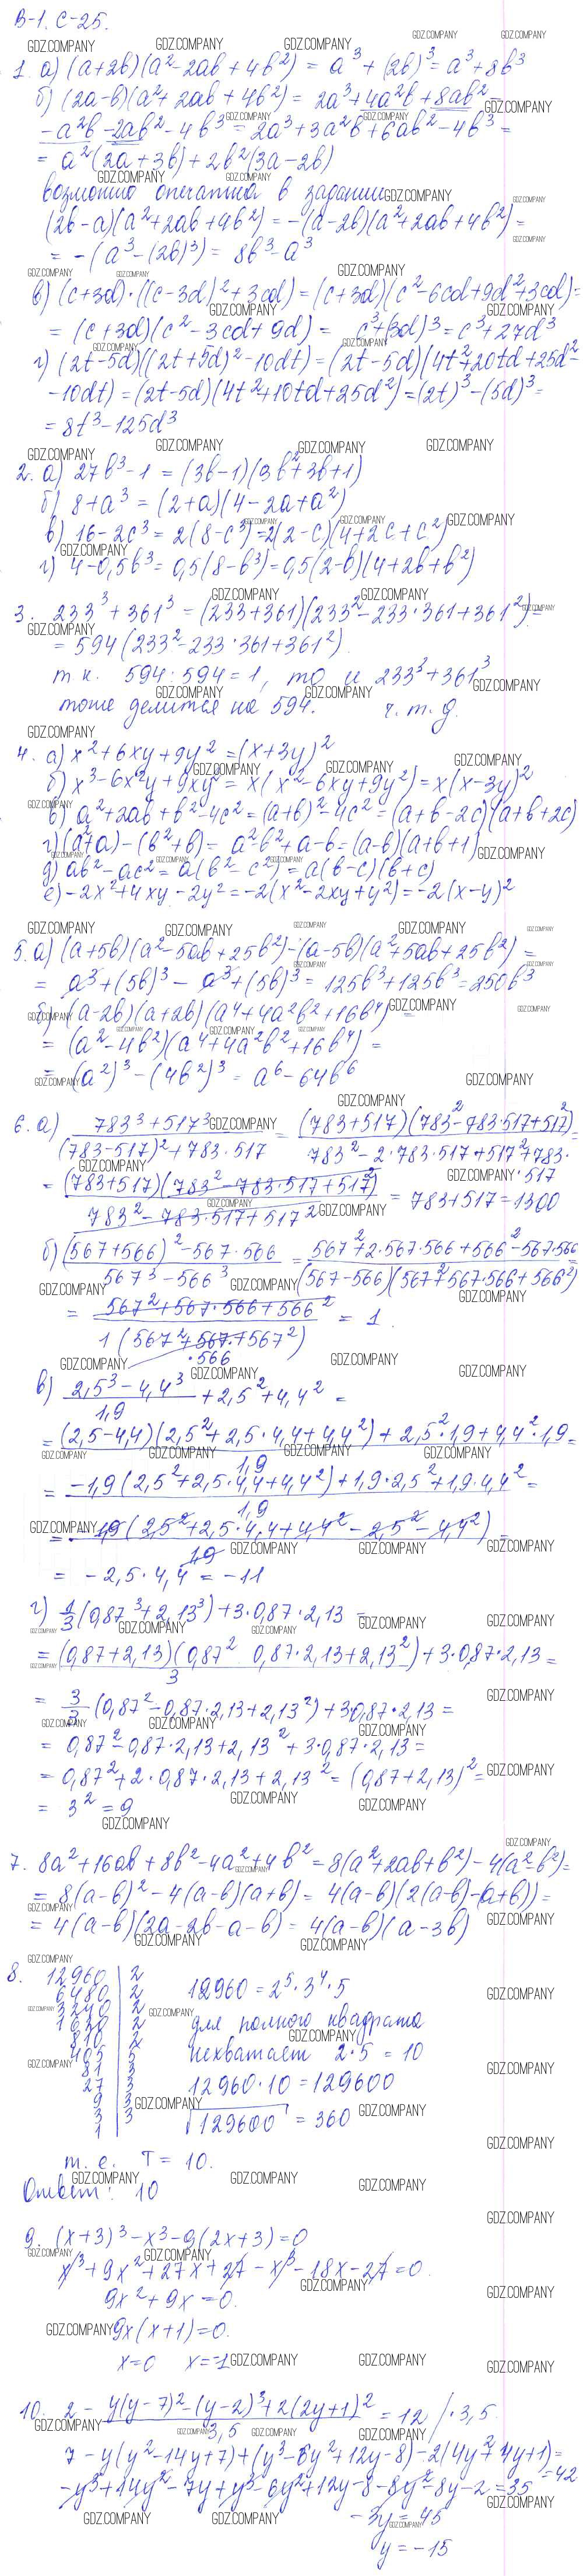 В-1. С-25.
1. а) (a+2b)(a²-2ab+4b²) = a³+(2b)³ = a³+8b³
б) (2a-b)(a²+2ab+4b²) = 2a³+4a²b+8ab²-
-a²b-2ab²-4b³ = 2a³+3a²b+6ab²-4b³ =
= a²(2a+3b)+2b²(3a-2b)
возможно опечатка в задании
(2b-a)(a²+2ab+4b²) = -(a-2b)(a²+2ab+4b²) =
= -(a³-(2b)³) = 8b³-a³
в) (c+3d)·((c-3d)²+3cd) = (c+3d)(c²-6cd+9d²+3cd) =
= (c+3d)(c²-3cd+9d) = c³+(3d)³ = c³+27d³
г) (2t-5d)((2t+5d)²-10dt) = (2t-5d)(4t²+20td+25d²-
-10dt) = (2t-5d)(4t²+10td+25d²) = (2t)³-(5d)³ =
= 8t³-125d³
2. а) 27b³-1 = (3b-1)(3b²+3b+1)
б) 8+a³ = (2+a)(4-2a+a²)
в) 16-2c³ = 2(8-c³) = 2(2-c)(4+2c+c²)
г) 4-0,5b³ = 0,5(8-b³) = 0,5(2-b)(4+2b+b²)
3. 233³+361³ = (233+361)(233²-233·361+361²) =
= 594(233²-233·361+361²)
т.к. 594:594=1, то и 233³+361³
тоже делится на 594. ч.т.д.
4. а) x²+6xy+9y² = (x+3y)²
б) x³-6x²y+9xy² = x(x²-6xy+9y²) = x(x-3y)²
в) a²+2ab+b²-4c² = (a+b)²-4c² = (a+b-2c)(a+b+2c)
г) (a²+a)-(b²+b) = a²b²+a-b = (a-b)(a+b+1)
д) ab²-ac² = a(b²-c²) = a(b-c)(b+c)
е) -2x²+4xy-2y² = -2(x²-2xy+y²) = -2(x-y)²
5. а) (a+5b)(a²-5ab+25b²)-(a-5b)(a²+5ab+25b²) =
= a³+(5b)³-a³+(5b)³ = 125b³+125b³ = 250b³
б) (a-2b)(a+2b)(a⁴+4a²b²+16b⁴) =
= (a²-4b²)(a⁴+4a²b²+16b⁴) =
= (a²)³-(4b²)³ = a⁶-64b⁶
6. а) 783³+517³ = (783+517)(783²-783·517+517²) =
(783-517)²+783·517 783²-2·783·517+517²+783·
·517
= (783+517)(783²-783·517+517²) = 783+517 = 1300
783²-783·517+517²
б) (567+566)²-567·566 = 567²+2·567·566+566²-567·566
567³-566³ (567-566)(567²+567·566+566²)
= 567²+567·566+566² = 1.
1(567²+567·+567²)
·566
в) 2,5³-4,4³ +2,5²+4,4² =
1,9
= (2,5-4,4)(2,5²+2,5·4,4+4,4²)+2,5²·1,9+4,4²·1,9 =
1,9
= -1,9(2,5²+2,5·4,4+4,4²)+1,9·2,5²+1,9·4,4² =
1,9
= -1,9(2,5²+2,5·4,4+4,4²-2,5²-4,4²) =
1,9
= -2,5·4,4 = -11
г) 1/3(0,87³+2,13³)+3·0,87·2,13 =
= (0,87+2,13)(0,87² 0,87·2,13+2,13²) +3·0,87·2,13 =
3
= 3/3(0,87²-0,87·2,13+2,13²)+3·0,87·2,13 =
= 0,87²-0,87·2,13+2,13²+3·0,87·2,13 =
= 0,87²+2·0,87·2,13+2,13² = (0,87+2,13)² =
= 3² = 9
7. 8a²+16ab+8b²-4a²+4b² = 8(a²+2ab+b²)-4(a²-b²) =
= 8(a-b)²-4(a-b)(a+b) = 4(a-b)(2(a-b)-(a+b)) =
= 4(a-b)(2a-2b-a-b) = 4(a-b)(a-3b)
8. 12960 | 2
6480 | 2 12960 = 2⁵·3⁴·5
3240 | 2
1620 | 2 для полного квадрата
810 | 2
405 | 5 нехватает 2·5 = 10
81 | 3
27 | 3 12960·10 = 129600
9 | 3
3 | 3 √129600 = 360
1
т.е. T = 10.
Ответ: 10
9. (x+3)³-x³-9(2x+3)=0
x³+9x²+27x+27-x³-18x-27=0.
9x²+9x=0.
9x(x+1)=0.
x=0 x=-1
10. 2 - y(y-7)²-(y-2)³+2(2y+1)² = 12 /·3,5.
3,5
7-y(y²-14y+7)+(y³-6y²+12y-8)-2(4y²+4y+1)=
=42
-y³+14y²-7y+y³-6y²+12y-8-8y²-8y-2=35
-3y=45
y=-15
GDZ.COMPANY